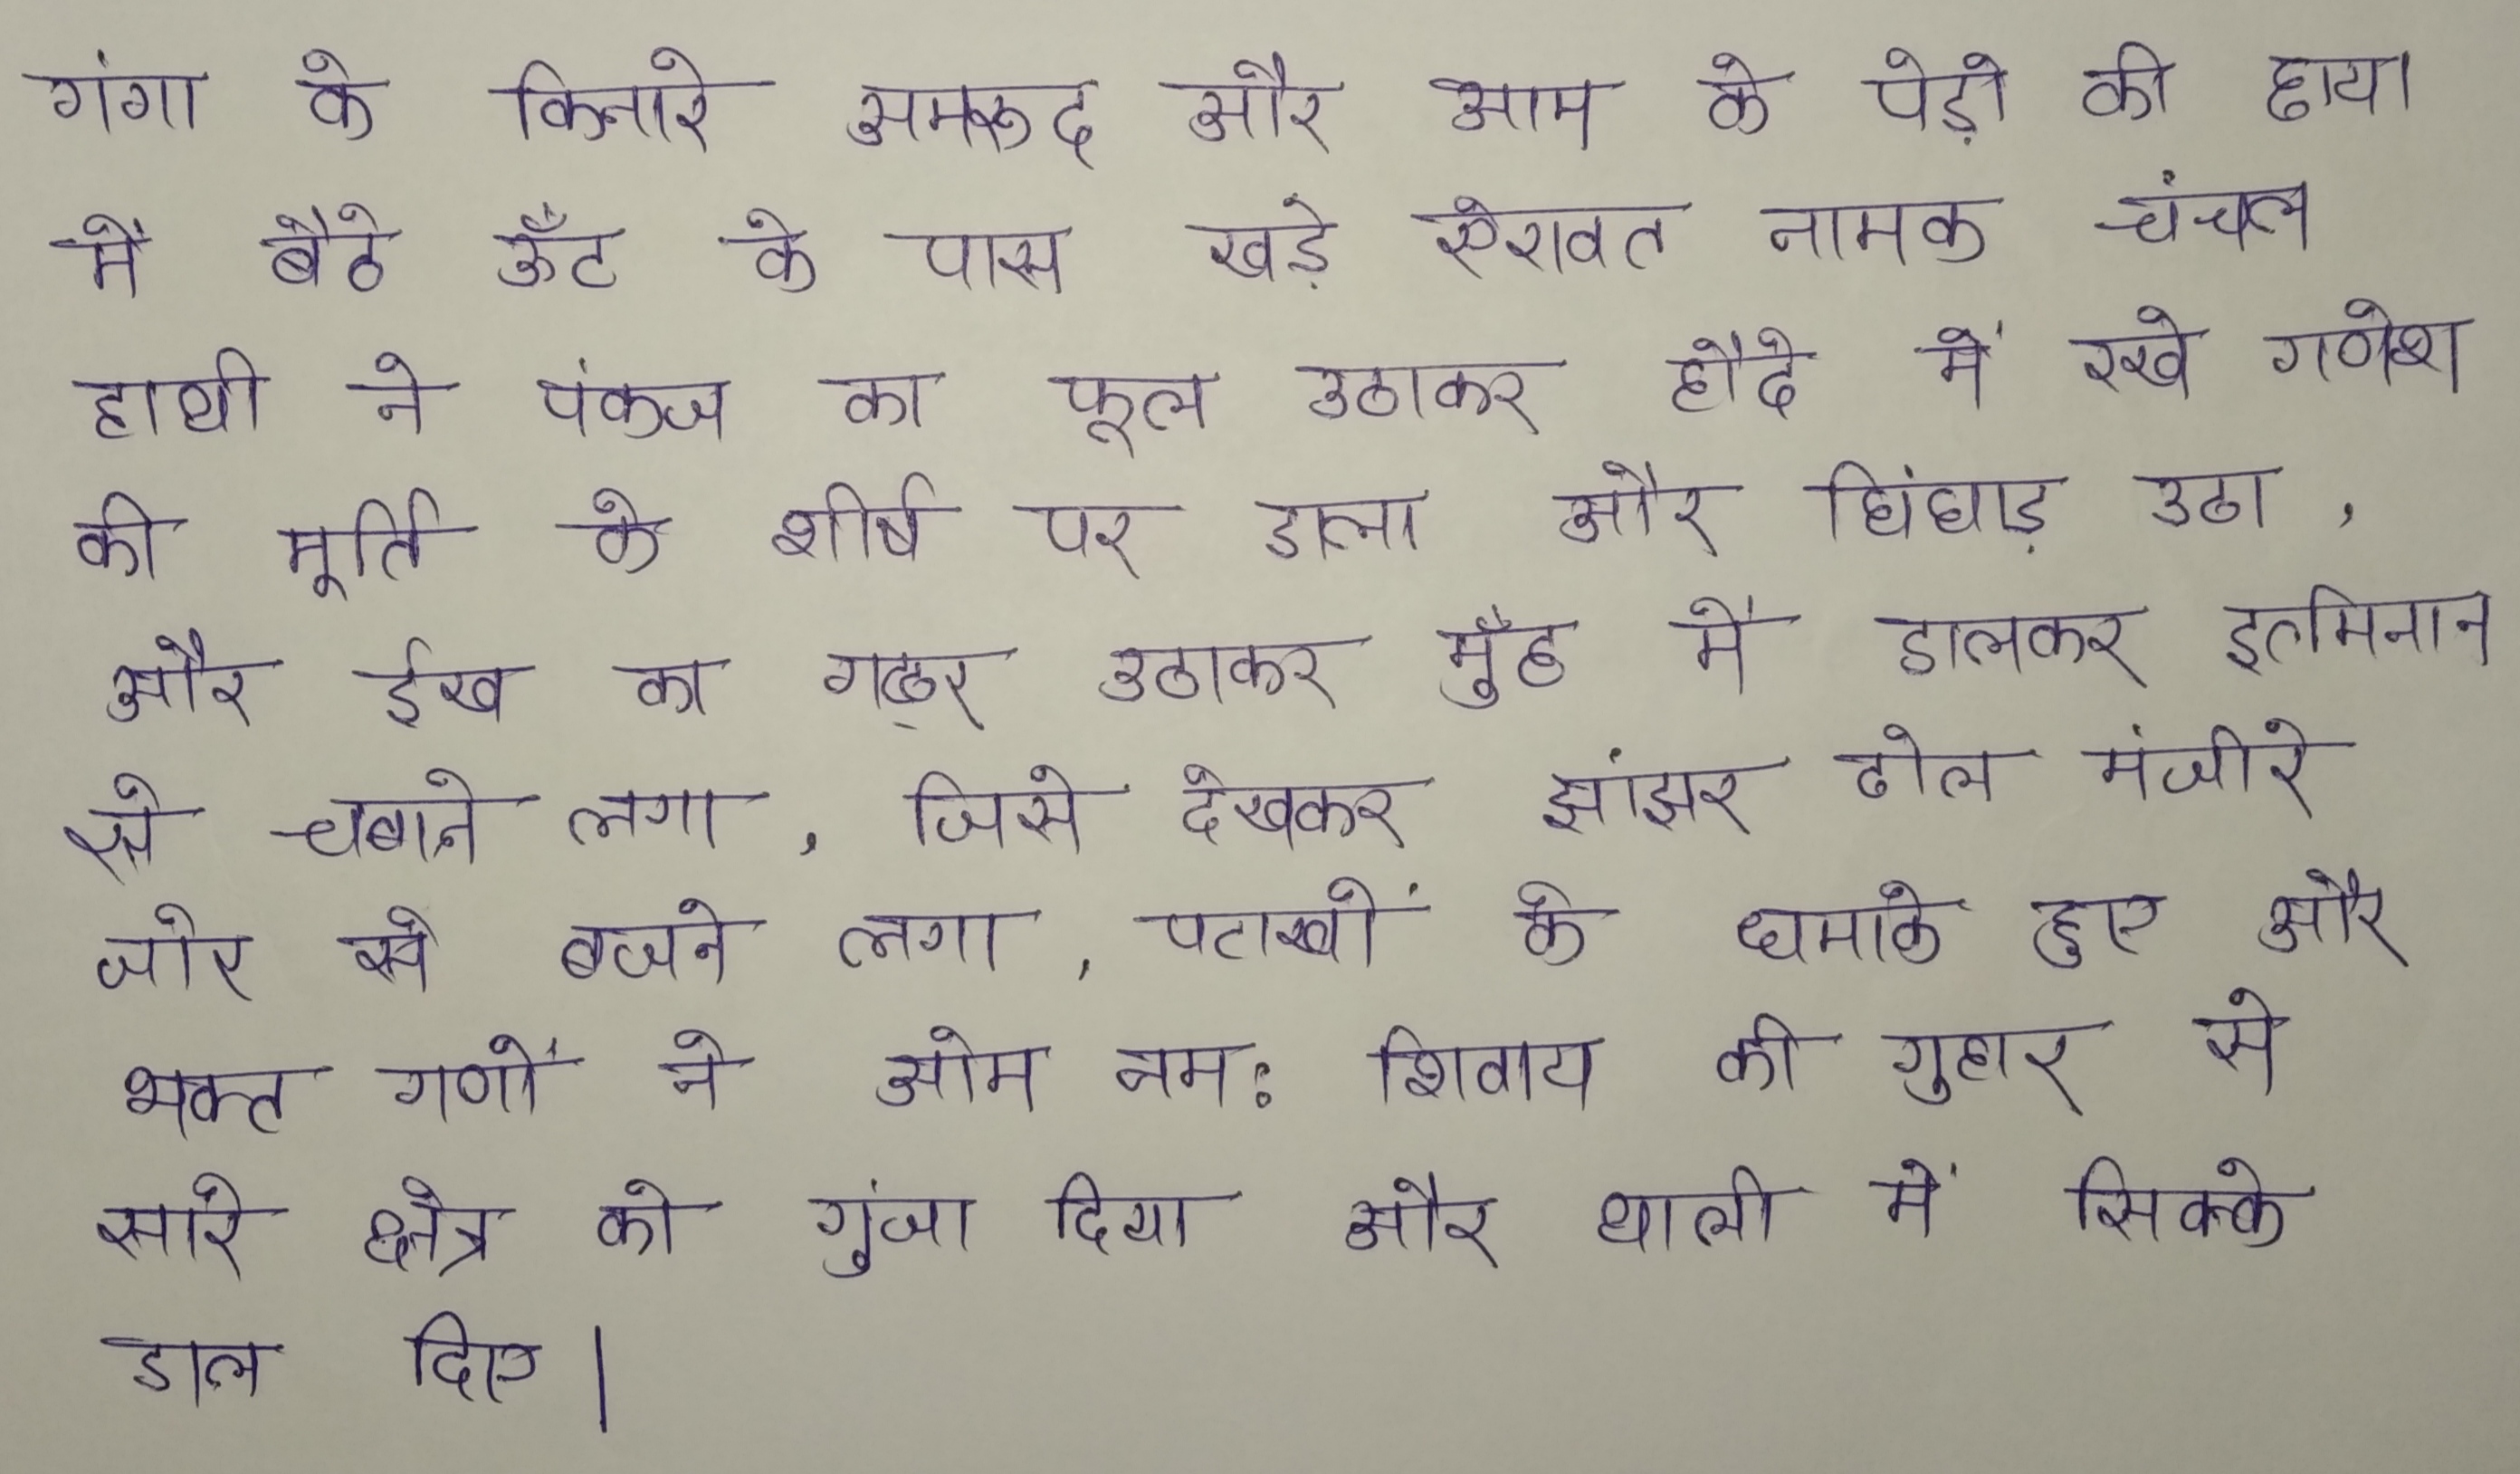 गंगा के किनारे अमरूद और आम के पेड़ो की छाया
में बैठे ऊँट के पास खड़े ऐरावत नामक चंचल
हाथी ने पंकज का फूल उठाकर हौदे में रखे गणेश
की मूर्ति के शीर्ष पर डाला और घिंघाड़ उठा ,
और ईख का गठ्ठर उठाकर मुँह में डालकर इत्मिनान
से चबाने लगा , जिसे देखकर झांझर ढोल मंजीरे
जोर से बजने लगा , पटाखों के धमाके हुए और
भक्त गणों ने ओम नमः शिवाय की गुहार से
सारे क्षेत्र को गुंजा दिया और थाली में सिक्के
डाल दिए |